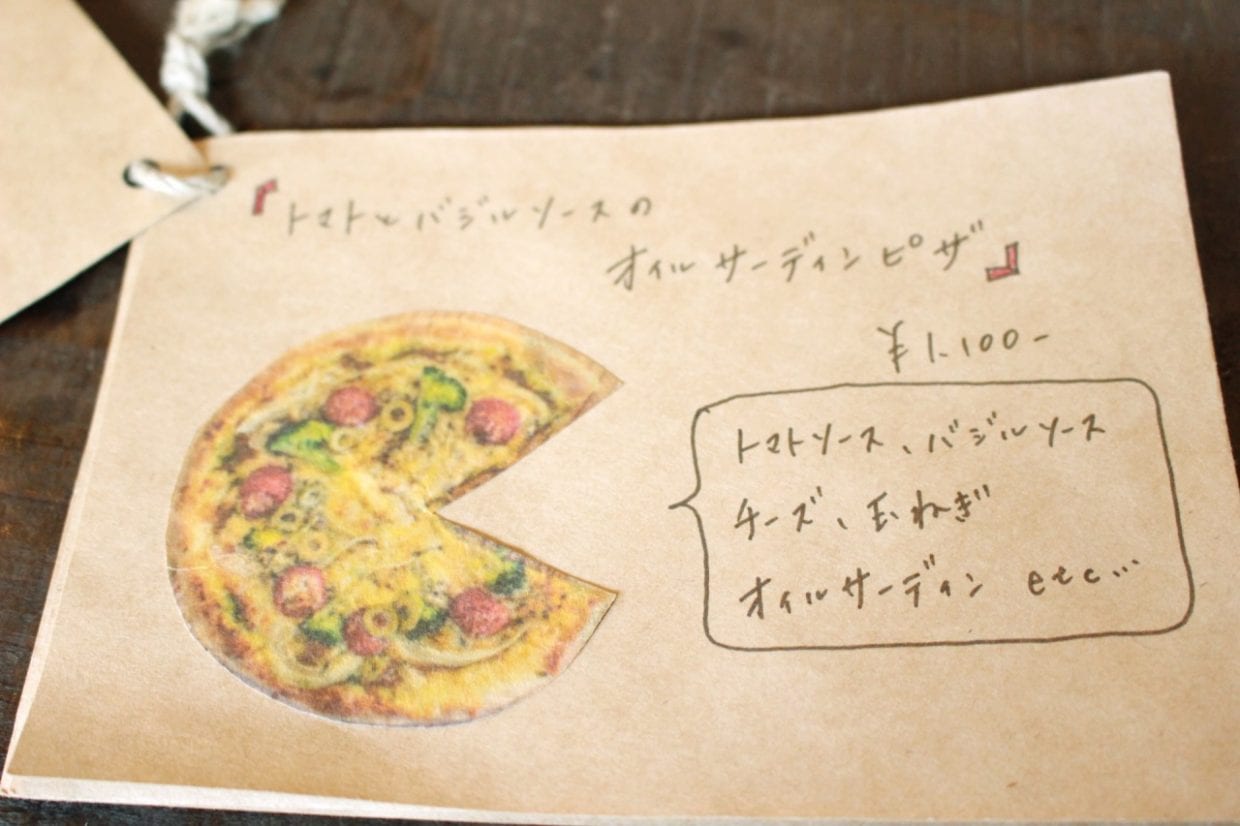 『トマトとバジルソースの
オイルサーディンピザ』
¥1,100-
トマトソース、バジルソース
チーズ、玉ねぎ
オイルサーディン etc...